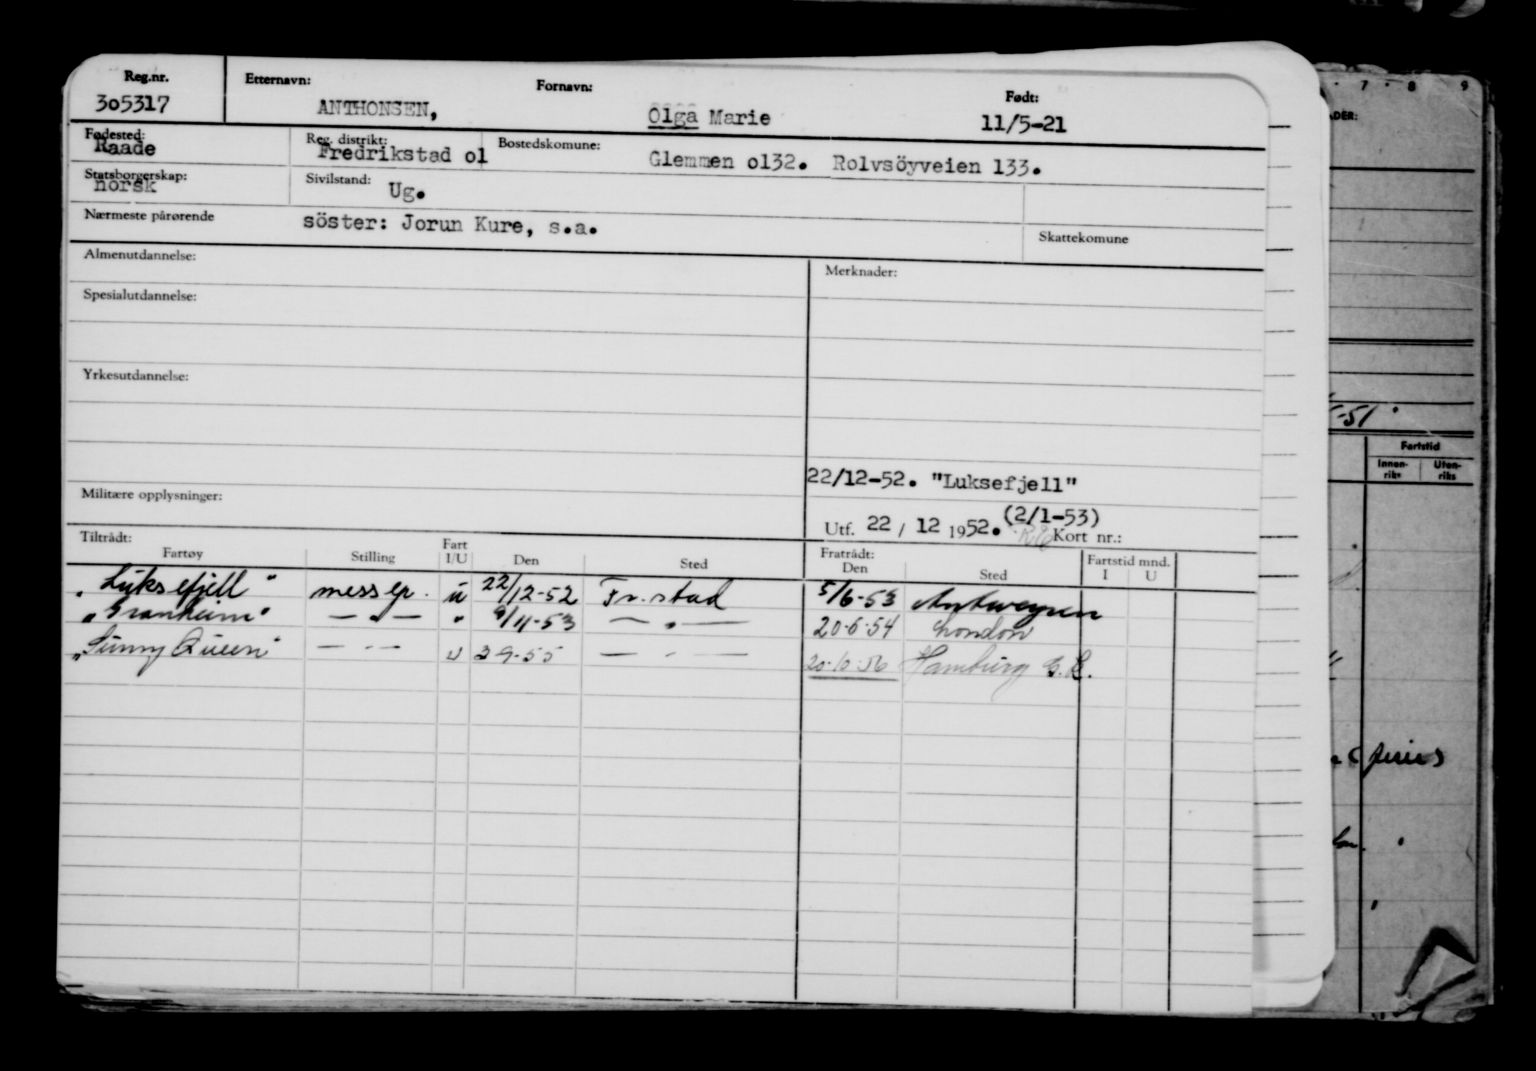 Reg.nr. Etternavn: Fornavn: Født:
305317 ANTHONSEN, Olga Marie 11/5-21
Fødested: Reg. distrikt: Bostedskomune:
Raade Fredrikstad o1 Glemmen o132. Rolvsöyveien 133.
Statsborgerskap: Sivilstand:
norsk Ug.
Nærmeste pårørende söster: Jorun Kure, s.a.
Skattekomune
Almenutdannelse: Merknader:
Spesialutdannelse:
Yrkesutdannelse:
22/12-52. "Luksefjell"
Militære opplysninger:
(2/1-53)
Utf. 22 / 12 1952. Kort nr.:
Tiltrådt: Fratrådt: Fartstid mnd.
Fartøy Stilling Fart I/U Den Sted Den Sted I U
"Luksefjell" messep. u 22/12-52 Fr.stad 5/6-53 Antwerpen
"Granheim" — " — " 9/11-53 — " — 20-6-54 London
"Sunny Queen" — " — u 2-9-55 — " — 20-10-56 Hamburg
7 8 9
-51
Fartstid
Innen-riks Uten-riks